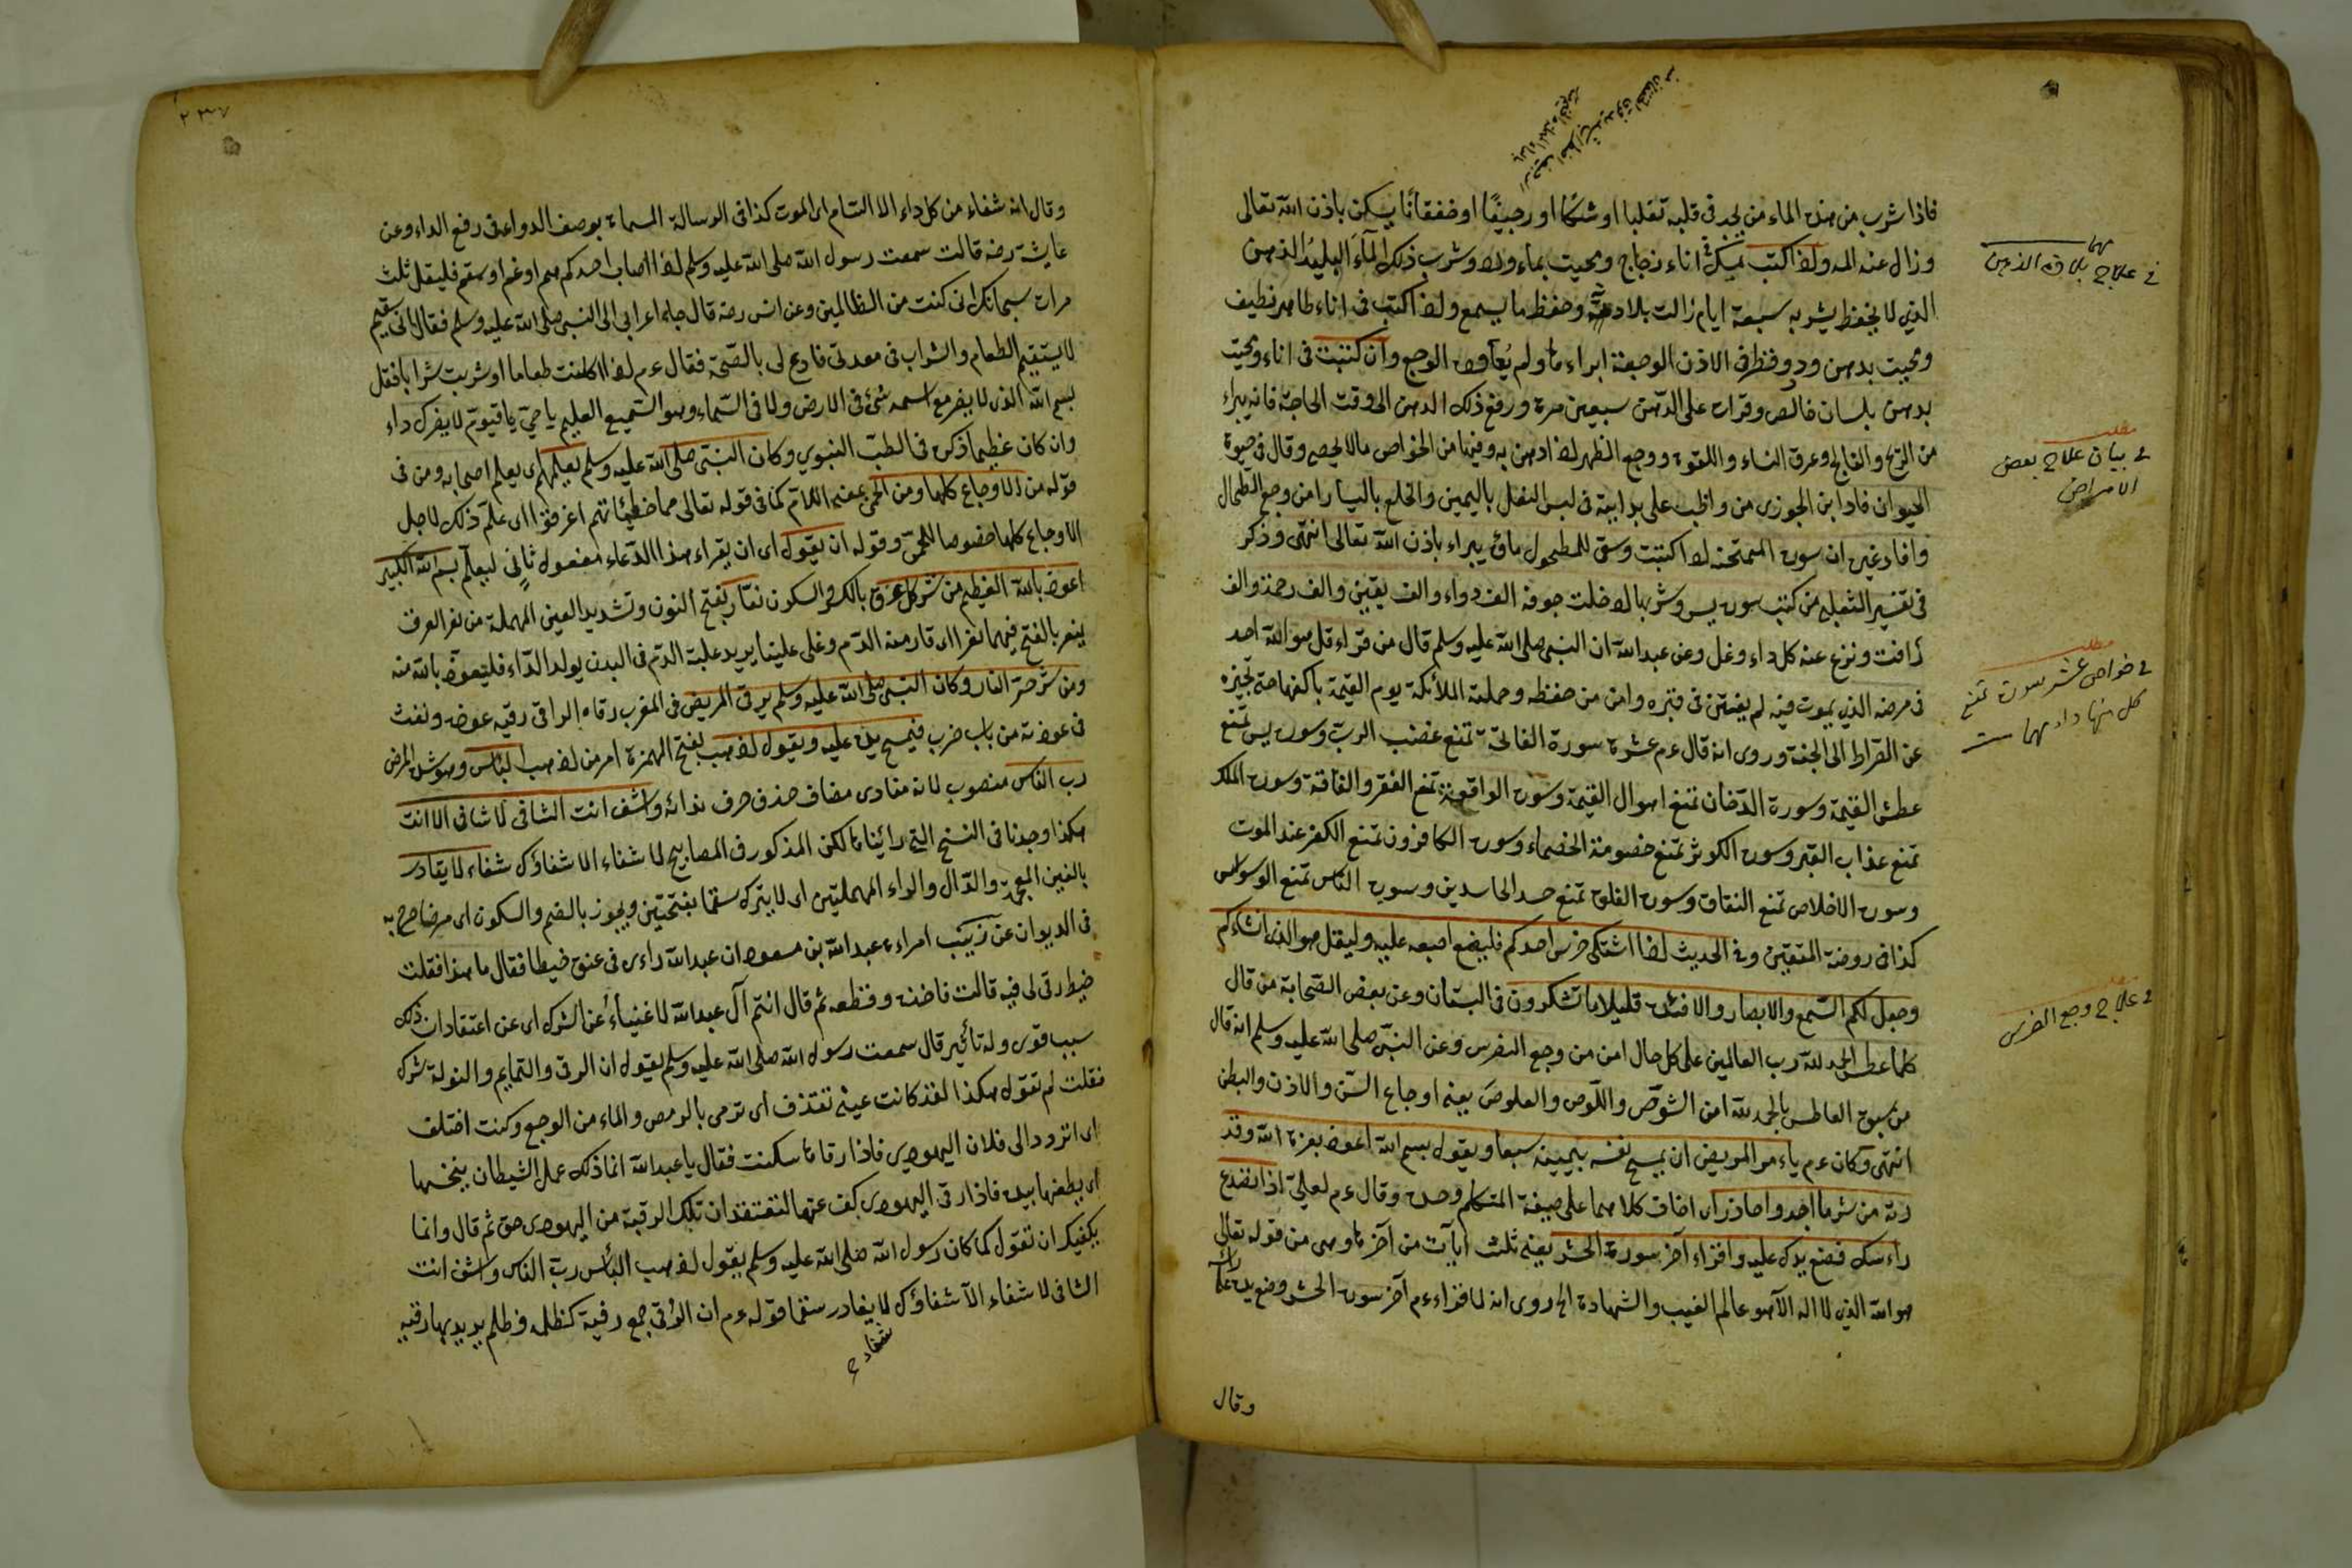 فاذا شرب من هذه الماء من يجد في قلبه تقلبا او شكا او رجيفا او خفقانا يسكن باذن الله تعالى
وزال عنه الم واذا كتب بمسك في اناء زجاج ومحيت بماء وشرب ذلك الماء البليد الذهن
الذي لا يحفظ يشربه سبعة ايام زالت بلادته وحفظ ما يسمع واذا كتب في اناء طاهر نظيف
ومحيت بدهن ورد وقطر في الاذن الوجعة ابراءها ولم يعاود الوجع وان كتبت في اناء ومحيت
بدهن بلسان خالص وقرات على الدهن سبعين مرة ورفع ذلك الدهن الى وقت الحاجة فانه يبراء
من الريح والفالج وعرق النساء واللقوة ووجع الظهر اذا دهن به وفيها من الخواص ما لا يحصى وقال في حيوة
الحيوان فاد ابن الجوزى من واظب على بدايته في لبس النعل باليمين والخلع باليسار امن وجع الطحال
وافاد غيره ان سورة الممتحنة اذا كتبت وسقى للمطحول ماؤه يبراء باذن الله تعالى انتهى وذكر
في تفسير الثعلبي من كتب سورة يس وشربها ادخلت جوفه الف دواء والف يقين والف رحمة والف
رأفت ونزع عنه كل داء وغل وعن عبدالله ان النبى صلى الله عليه وسلم قال من قراء قل هو الله احد
في مرضه الذي يموت فيه لم يفتتن في قبره وامن من ضغطه وحملته الملائكة يوم القيمة باكفها حتى تجيزه
عن الصراط الى الجنة وروى انه قال عم عشرة سورة الفاتحة تمنع غضب الرب وسورة يس تمنع
عطش القيمة وسورة الدخان تمنع اهوال القيمة وسورة الواقعة تمنع الفقر والفاقة وسورة الملك
تمنع عذاب القبر وسورة الكوثر تمنع خصومة الخصماء وسورة الكافرون تمنع الكفر عند الموت
وسورة الاخلاص تمنع النفاق وسورة الفلق تمنع حسد الحاسدين وسورة الناس تمنع الوسواس
كذا في روضة المتقين وفي الحديث اذا اشتكى ضرس احدكم فليضع اصبعه عليه وليقل هو الذي انشاءكم
وجعل لكم السمع والابصار والافئدة قليلا ما تشكرون في البستان وعن بعض الصحابة من قال
كلما عطس الحمد لله رب العالمين على كل حال امن من وجع الضرس وعن النبى صلى الله عليه وسلم انه قال
من سبق العاطس بالحمد لله امن الشوص واللوص والعلوص يعنى اوجاع السن والاذن والبطن
انتهى وكان عم ياءمر المريض ان يمسح نفسه بيمينه سبعا ويقول بسم الله اعوذ بعزة الله وقد
رته من شر ما اجد واحاذر اى اضاف كلاهما على صيغة المتكلم وحده وقال عم لعلى اذا تصدع
راءسك فضع يدك عليه واقراء آخر سورة الحشر يعنى ثلث آيات من آخرها وهي من قوله تعالى
هو الله الذي لا اله الا هو عالم الغيب والشهادة الخ روى انه لما قراء عم آخر سورة الحشر وضع يده على
وقال
في علاج بلادة الذهن
مطلب
في بيان علاج بعض
الامراض
مطلب
في خواص عشر سورة تمنع
كل منها
في علاج وجع الضرس
٢٣٧
وقال انه شفاء من كل داء الا السام اى الموت كذا في الرسالة المسماة بوصف الدواء في رفع الداء وعن
عايشة رضه قالت سمعت رسول الله صلى الله عليه وسلم اذا اصاب احدكم هم او غم او سقم فليقل ثلث
مرات سبحانك انى كنت من الظالمين وعن انس رضه قال جاء اعرابي الى النبى صلى الله عليه وسلم فقال انى سقيم
لا يستقيم الطعام والشراب في معدتى فادع لى بالصحة فقال عم اذا اكلت طعاما او شربت شرابا فقل
بسم الله الذي لا يضر مع اسمه شئ في الارض ولا في السماء وهو السميع العليم يا حي يا قيوم لا يضرك داء
وان كان عظيما ذكره في الطب النبوي وكان النبى صلى الله عليه وسلم يعلمهم اى يعلم اصحابه ومن في
قوله من الاوجاع كلها ومن الحمى بمعنى اللام كما في قوله تعالى مما خطيئاتهم اغرقوا اى علم ذلك لاجل
الاوجاع كلها خصوصا للحمى وقوله ان يقول اى ان يقراء هذا الدعاء مفعول ثانى ليعلم بسم الله الكبير
اعوذ بالله العظيم من شر كل عرق بالكسر والسكون نعار بفتح النون وتشديد العين المهملة من نعر العرق
ينعر بالفتح فيهما نعرا اى فار منه الدم وغلى علينا يريد غلبة الدم في البدن يولد الداء فليتعوذ بالله منه
ومن شر حر النار وكان النبى صلى الله عليه وسلم يرقى المريض في المغرب رقاه الراقى رقيه عوذه ونفث
في عوذته من باب ضرب فيمسح يده عليه ويقول اذهب بفتح الهمزة امر من اذهب الباس وهو شدة المرض
رب الناس منصوب لانه منادى مضاف حذف حرف ندائه واشف انت الشافى لا شافى الا انت
هكذا وجدنا في النسخ التى رائيناها لكن المذكور في المصابيح لا شفاء الا شفاؤك شفاء لا يغادر
بالغين المعجمة والدال والراء المهملتين اى لا يترك سقما بفتحتين ويجوز بالضم والسكون اى مرضا صرح به
في الديوان عن زينب امراءة عبدالله بن مسعود ان عبدالله راءى في عنق خيطا فقال ما هذا فقلت
خيط رقى لى فيه قالت فاخذه وقطعه ثم قال انتم آل عبدالله لاغنياء عن الشرك اى عن اعتقاد ان ذلك
سبب قوى وله تأثير قال سمعت رسول الله صلى الله عليه وسلم يقول ان الرقى والتمايم والتولة شرك
فقلت لم تقول هكذا لقد كانت عينى تقذف اى ترمى بالرمص والماء من الوجع وكنت اختلف
اى اتردد الى فلان اليهودى فاذا رقاها سكنت فقال يا عبدالله انما ذلك عمل الشيطان ينخسها
اى يطعنها بيده فاذا رقى اليهودى كف عنها لتعتقد ان تلك الرقية من اليهودى حق ثم قال وانما
يكفيك ان تقول كما كان رسول الله صلى الله عليه وسلم يقول اذهب البأس رب الناس واشف انت
الشافى لا شفاء الا شفاؤك لا يغادر سقما قوله عم ان الرقى جمع رقية كظلم وظلم يريد بها رقية
شفاء